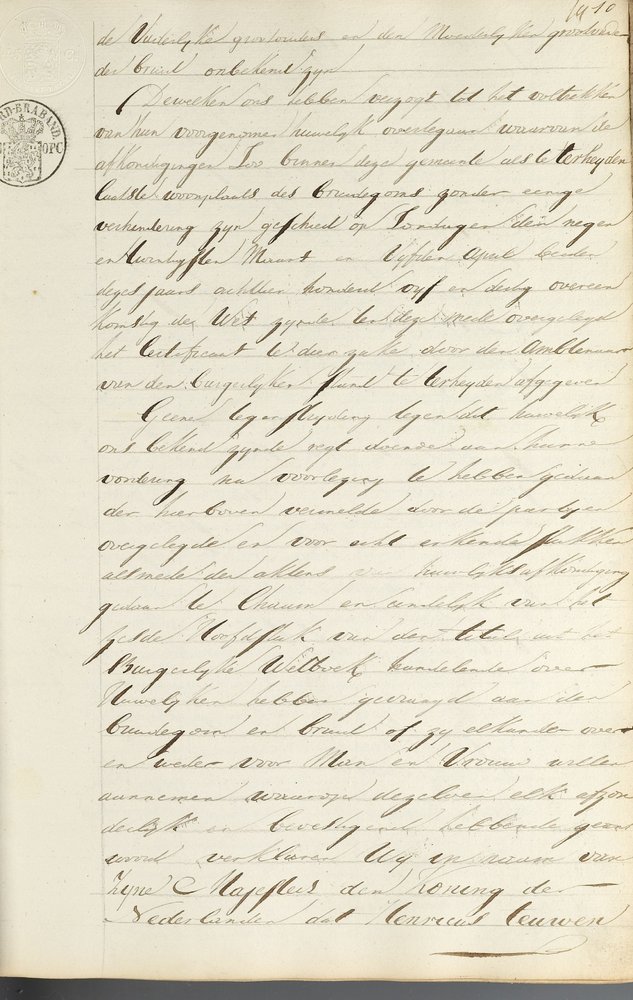 10
de Vaderlijke grootouders en den Moederlijken grootvader
der bruid onbekend zyn
Dewelken ons hebben verzogt tot het voltrekken
van hun voorgenomen huwelijk overtegaan waarvan de
afkondigingen zoo binnen deze gemeente als te terheyden
laatste woonplaats des bruidegoms zonder eenige
verhindering zyn geschied op Zondagen den negen
en twintigsten Maart en vijfden April beiden
dezes jaars achttien honderd vyf en dertig overeen
komstig de Wet zynde ten deze mede overgelegd
het Certificaat te dier zake door den Ambtenaar
van den burgerlyken stand te terheyden afgegeven
Geene tegen dat huwelijk
ons bekend zynde regt doende aan hunne
vordering na voorlezing te hebben gedaan
der hierboven vermelde door de partyen
overgelegde en voor echt erkende stukken
alsmede den aktens van huwelijks afkondiging
gedaan te Chaam en eindelyk van het
zesde Hoofdstuk van den titel uit het
Burgerlyke Wetboek handelende over
Huwelyken hebben gevraagd aan den
bruidegom en bruid of zy elkander over
en weder voor Man en Vrouw willen
aannemen waarop dezelven elk afzon
derlyk en bevestigend hebbende geant
woord verklaren Wy in naam van
Zyne Majesteit den Koning der
Nederlanden dat Henricus teuwen
RD-BRABAND
OPC